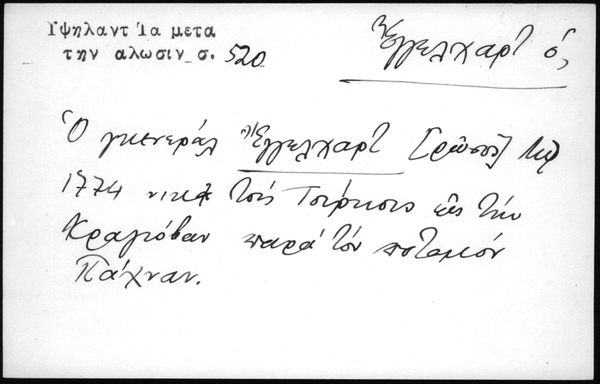 Ὑψηλαντ Ἰα μετα
την αλωσιν σ. 520
Ἔγγελχαρτ ὁ,
Ὁ γκενεράλ Ἔγγελχαρτ [ρῶσος]
1774 νικᾷ τοὺς Τούρκους εἰς τὴν
Κραγιόβαν παρὰ τὸν ποταμόν
Πάχναν.